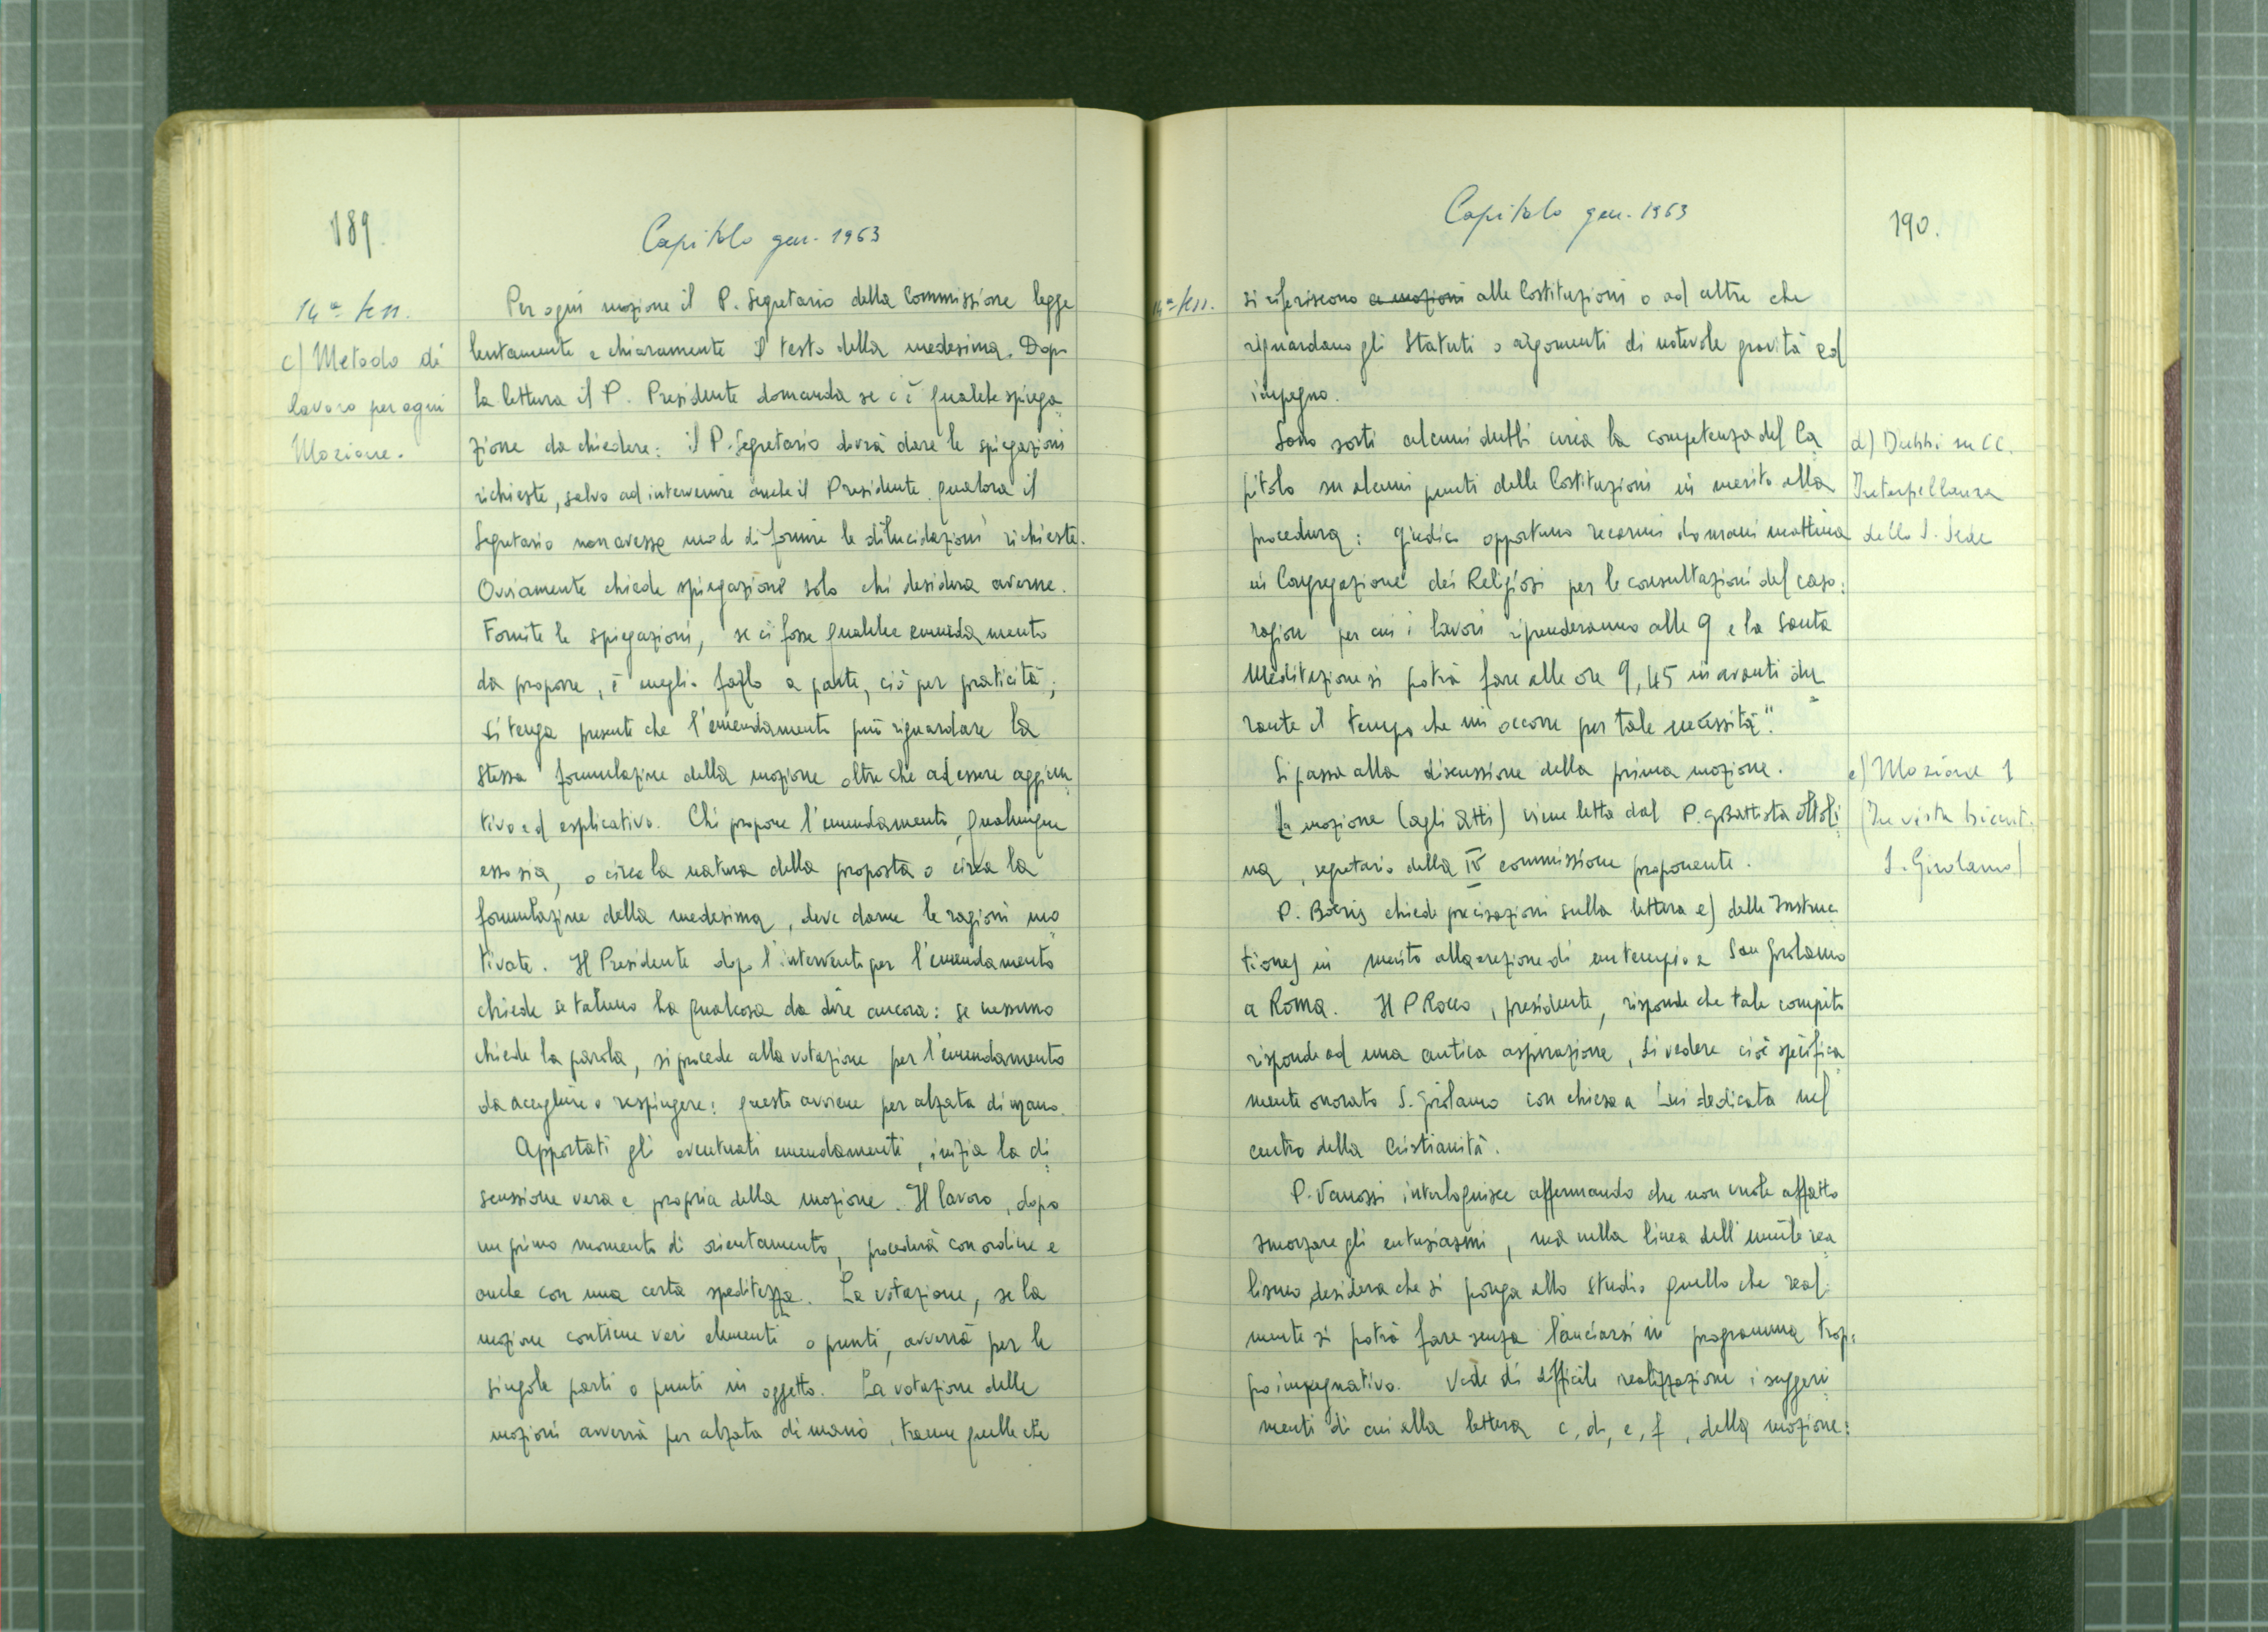 189.
Capitolo gen. 1963
14ª sess.
c) Metodo di
lavoro per ogni
Mozione.
Per ogni mozione il P. Segretario della Commissione legge
lentamente e chiaramente il testo della medesima. Dopo
la lettura il P. Presidente domanda se c'è qualche spiega
zione da chiedere: il P. Segretario dovrà dare le spiegazioni
richieste, salvo ad intervenire anche il Presidente qualora il
Segretario non avesse modo di fornire le dilucidazioni richieste.
Ovviamente chiede spiegazione solo chi desidera averne.
Fornite le spiegazioni, se ci fosse qualche emendamento
da proporre, è meglio farlo a parte, ciò per praticità;
si tenga presente che l'emendamento può riguardare la
stessa formulazione della mozione oltre che ad essere aggiun
tivo ed esplicativo. Chi propone l'emendamento, qualunque
esso sia, o circa la natura della proposta o circa la
formulazione della medesima, deve darne le ragioni mo
tivate. Il Presidente dopo l'intervento per l'emendamento
chiede se taluno ha qualcosa da dire ancora: se nessuno
chiede la parola, si procede alla votazione per l'emendamento
da accogliere o respingere: questo avviene per alzata di mano.
Apportati gli eventuali emendamenti, inizia la di
scussione vera e propria della mozione. Il lavoro, dopo
un primo momento di orientamento, procederà con ordine e
anche con una certa speditezza. La votazione, se la
mozione contiene vari elementi o punti, avverrà per le
singole parti o punti in oggetto. La votazione delle
mozioni avverrà per alzata di mano, tranne quelle che
Capitolo gen. 1963
190.
14ª sess.
si riferiscono a mozioni alle Costituzioni o ad altre che
riguardano gli Statuti o argomenti di notevole gravità ed
impegno.
Sono sorti alcuni dubbi circa la competenza del Ca
pitolo su alcuni punti delle Costituzioni in merito alla
procedura: giudico opportuno recarmi domani mattina
in Congregazione dei Religiosi per le consultazioni del caso:
ragion per cui i lavori riprenderanno alle 9 e la Santa
Meditazione si potrà fare alle ore 9,45 in avanti du
rante il tempo che mi occorre per tale necessità".
d) Dubbi su CC.
Interpellanza
della S. Sede
Si passa alla discussione della prima mozione.
La mozione (agli Atti) viene letta dal P. GBattista Oltoli
na, segretario della IV commissione proponente.
e) Mozione 1
(In vista bicent.
S. Girolamo)
P. Boeris chiede precisazioni sulla lettera e) delle Instruc
tiones in merito alla erezione di un tempio a San Girolamo
a Roma. Il P Rocco, presidente, risponde che tale compito
risponde ad una antica aspirazione, di vedere cioè specifica
mente onorato S. Girolamo con chiesa a Lui dedicata nel
centro della Cristianità.
P. Vanossi interloquisce affermando che non vuole affatto
smorzare gli entusiasmi, ma nella linea dell'umile rea
lismo desidera che si ponga allo studio quello che real:
mente si potrà fare senza lanciarsi in programma trop:
po impegnativo. Vede di difficile realizzazione i suggeri
menti di cui alla lettera c, d, e, f, della mozione: